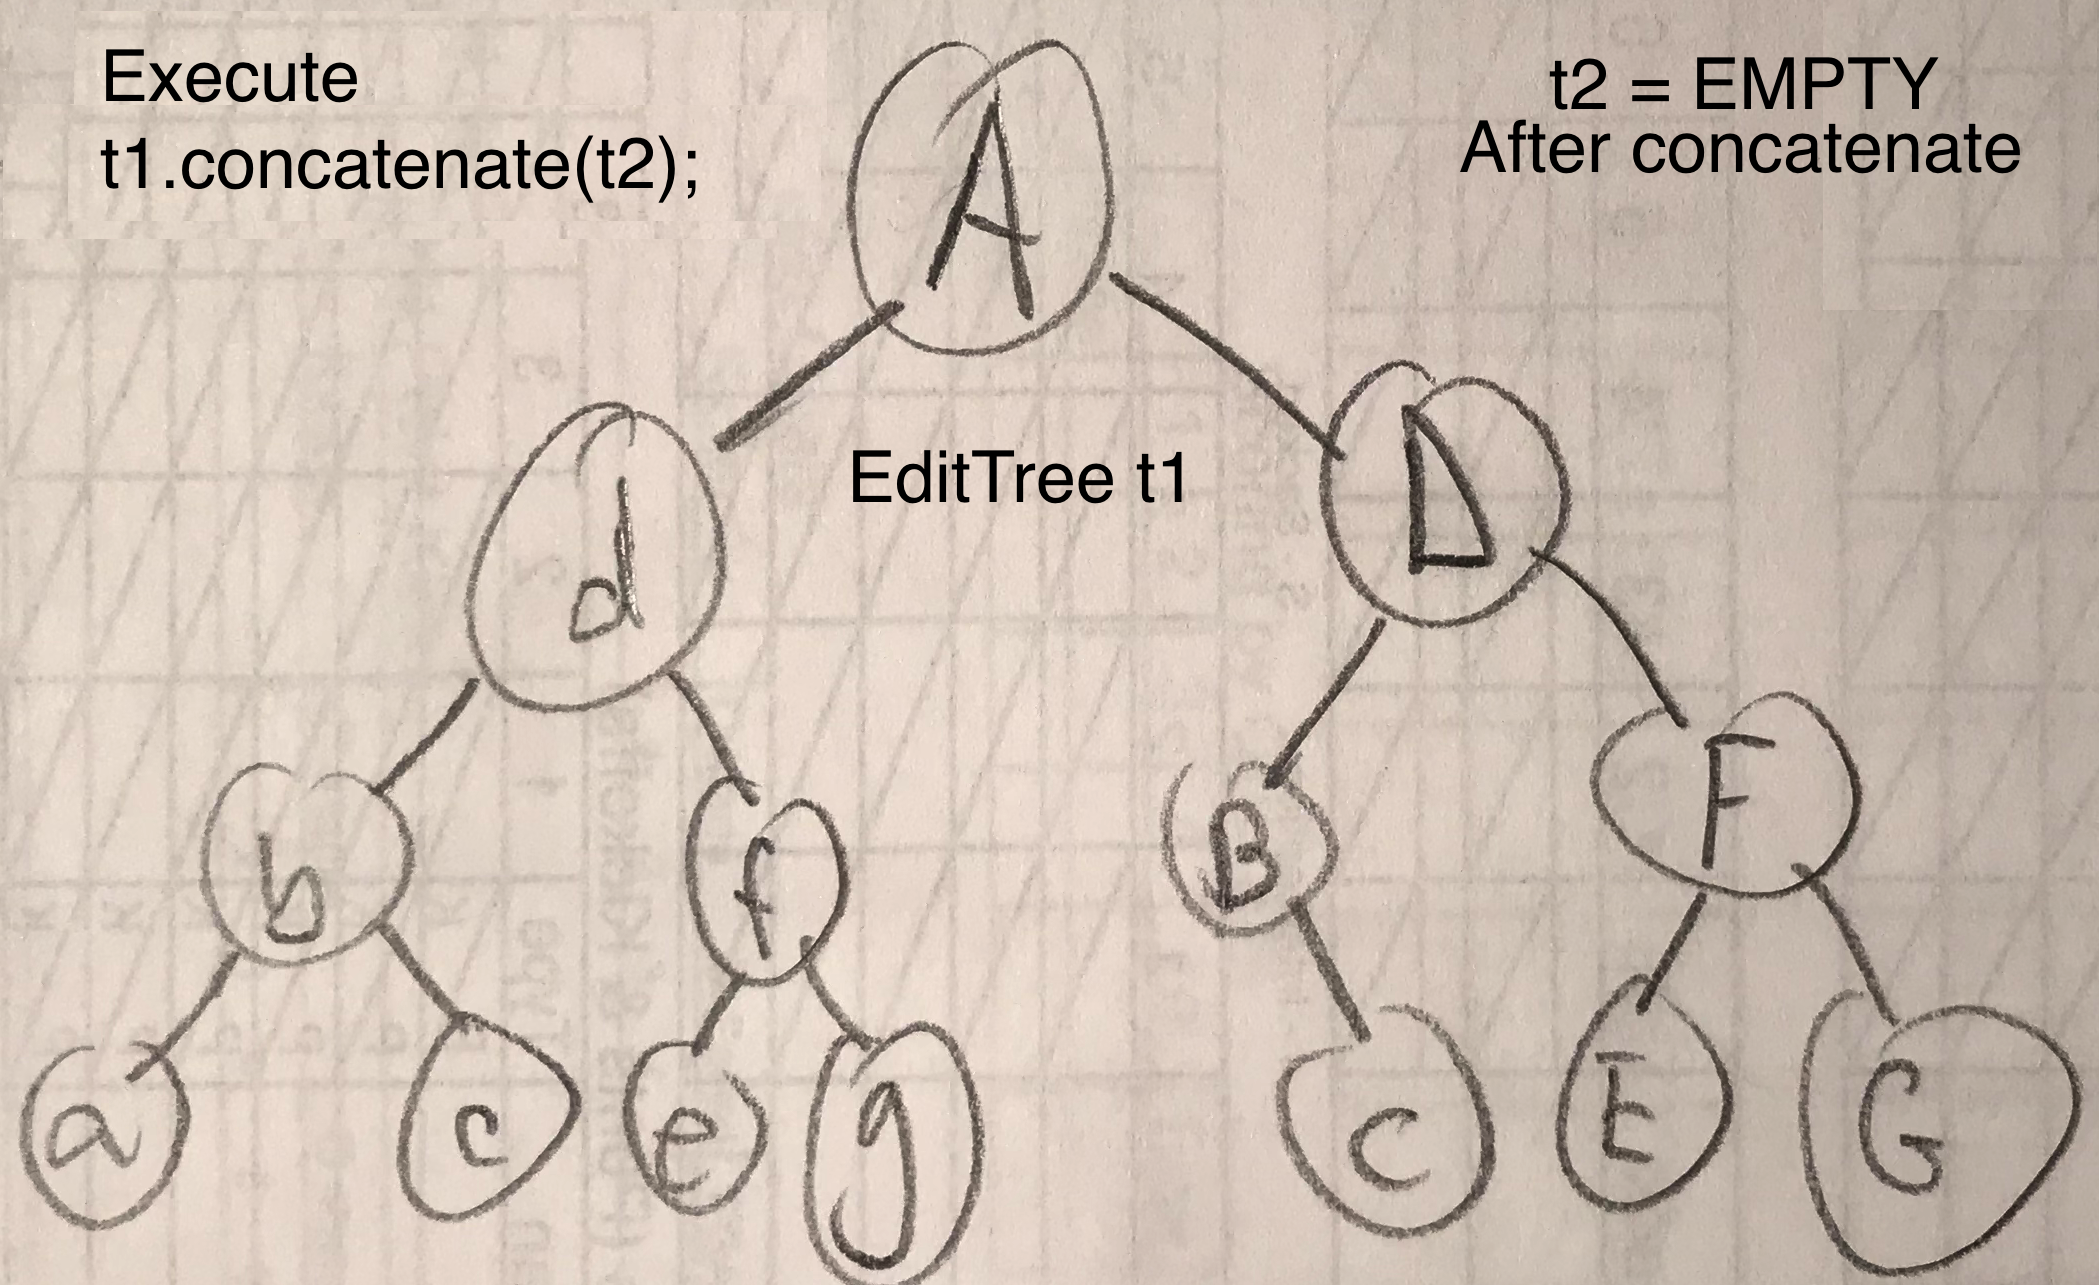 Execute
t1.concatenate(t2);
t2 = EMPTY
After concatenate
A
EditTree t1
d
D
b
f
B
F
a
c
e
g
C
E
G